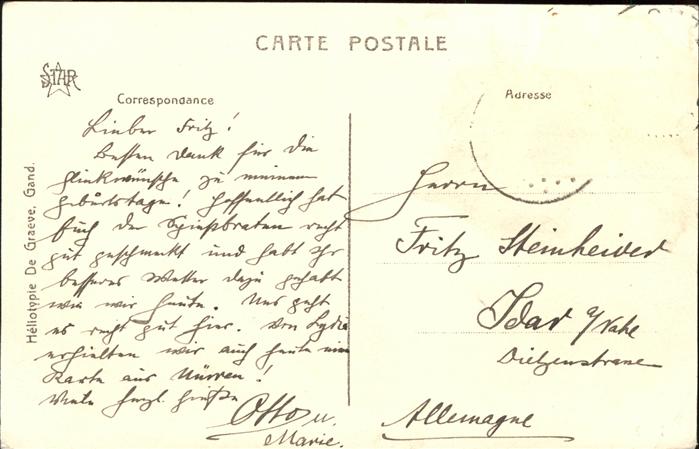 CARTE POSTALE
STAR
Correspondance
Adresse
Héliotypie De Graeve, Gand.
Lieber Fritz!
Besten Dank für die
Glückwünsche zu meinem
Geburtstage! Hoffentlich hat
Euch der Spießbraten recht
gut geschmeckt und habt Ihr
besseres Wetter dazu gehabt
wie wir heute. Uns geht
es recht gut hier. Von Lydia
erhielten wir auch heute eine
Karte aus
Viele herzl. Grüße
Otto u.
Marie.
Herrn
Fritz Steinheider
Idar a/Nahe
Allemagne